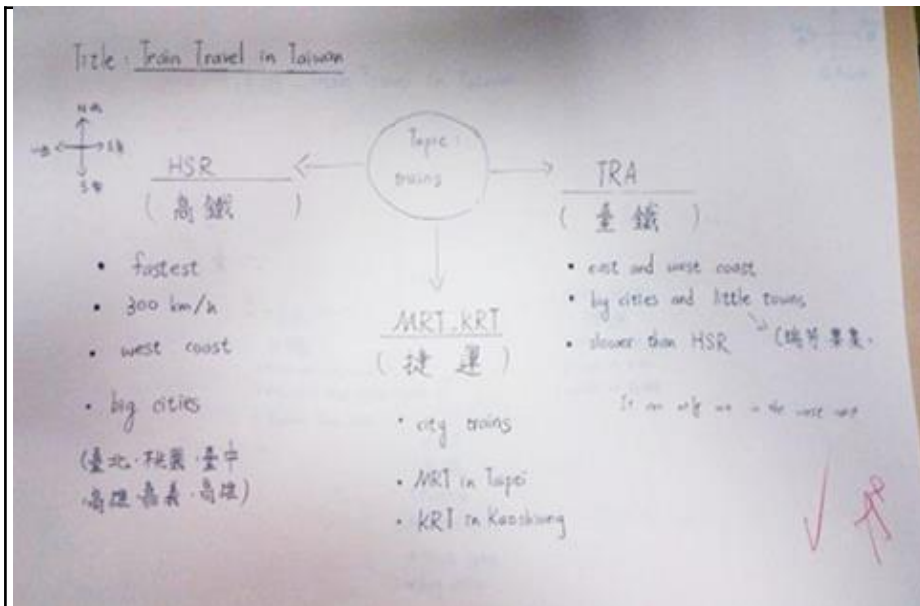 Title: Train Travel in Taiwan
Topic:
trains
HSR
(高鐵)
• fastest
• 300 km/h
• west coast
• big cities
(臺北·桃園·臺中
·高雄·嘉義·高雄)
MRT.KRT
(捷運)
• city trains
• MRT in Taipei
• KRT in Kaoshiung
TRA
(臺鐵)
• east and west coast
• big cities and little towns
• slower than HSR